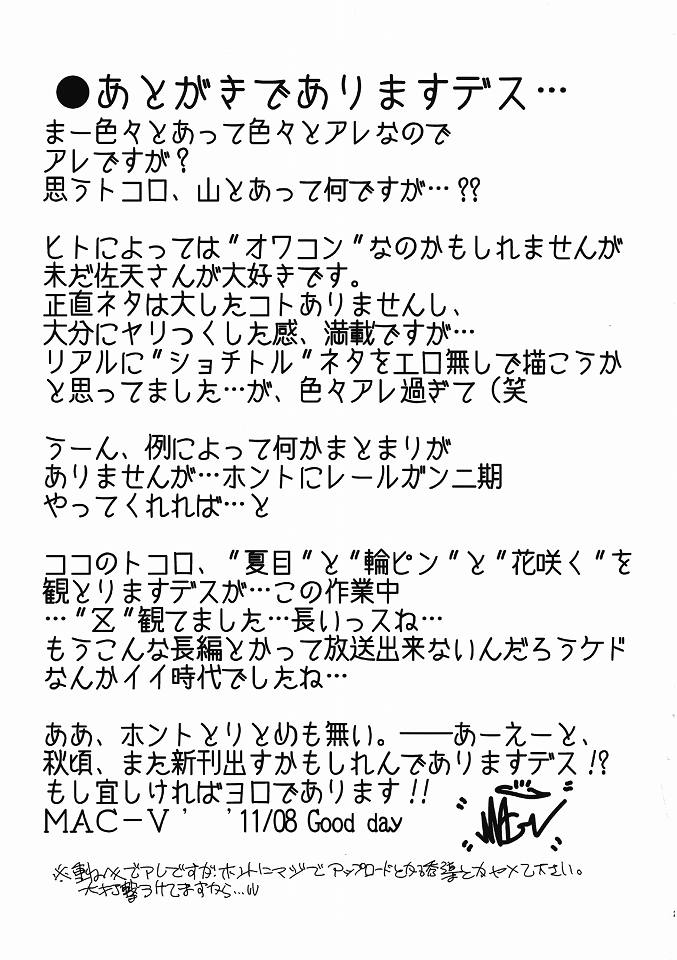 ●あとがきでありますデス…
まー色々とあって色々とアレなので
アレですが？
思うトコロ、山とあって何ですが…⁇
ヒトによっては〝オワコン〟なのかもしれませんが
未だ佐天さんが大好きです。
正直ネタは大したコトありませんし、
大分にヤリつくした感、満載ですが…
リアルに〝ショチトル〟ネタをエロ無しで描こうか
と思ってました…が、色々アレ過ぎて（笑
うーん、例によって何かまとまりが
ありませんが…ホントにレールガン二期
やってくれれば…と
ココのトコロ、〝夏目〟と〝輪ピン〟と〝花咲く〟を
観とりますデスが…この作業中
…〝Z〟観てました…長いっスね…
もうこんな長編とかって放送出来ないんだろうケド
なんかイイ時代でしたね…
ああ、ホントとりとめも無い。──あーえーと、
秋頃、また新刊出すかもしれんでありますデス!?
もし宜しければヨロであります!!
MAC－V ’ ’11/08 Good day
※重ね々でアレですが、ホントにマジでアップロードとか誘導とかヤメて下さい。
大打撃うけてますから…w